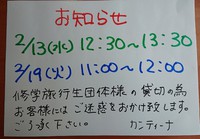 お知らせ
2/13(水) 12:30～13:30
2/19(火) 11:00～12:00
修学旅行生団体様の貸切の為
お客様にはご迷惑をおかけ致します。
ご了承下さい。 カンティーナ